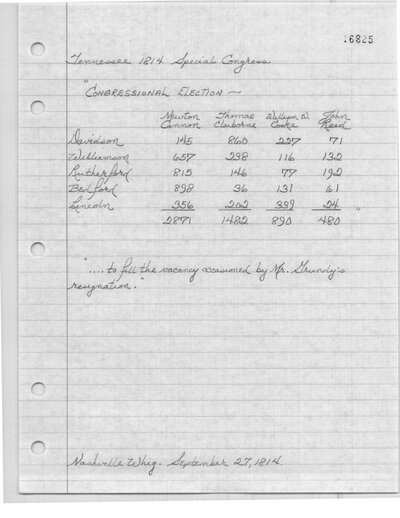 16825
Tennessee 1814 Special Congress
"CONGRESSIONAL ELECTION —
Newton Thomas William W. John
Cannon Claiborne Cocke Reed
Davidson 145 860 227 71
Williamson 657 238 116 132
Rutherford 815 146 77 192
Bedford 898 36 131 61
Lincoln 356 202 339 24 "
2871 1482 890 480
".... to fill the vacancy occasioned by Mr. Grundy's
resignation."
Nashville Whig. September 27, 1814.